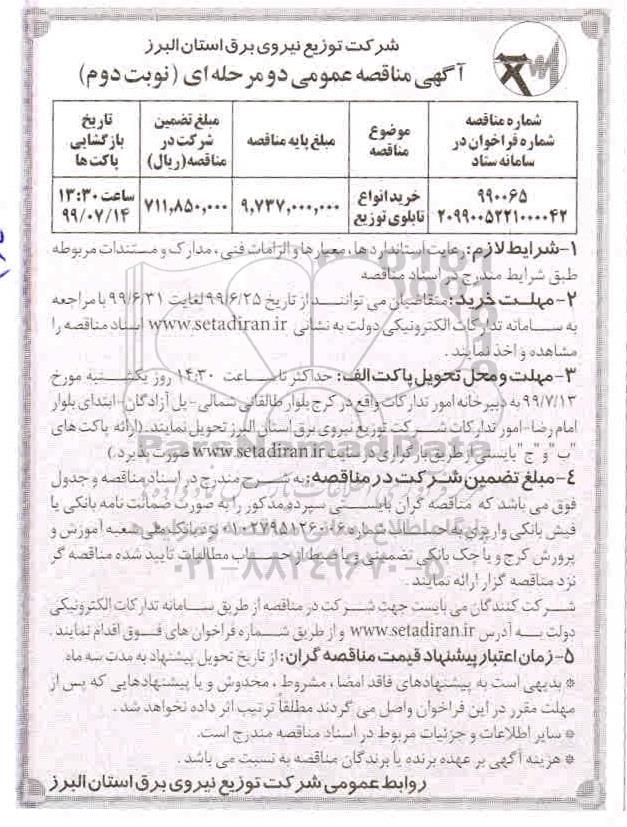 شرکت توزیع نیروی برق استان البرز
آگهی مناقصه عمومی دو مرحله ای (نوبت دوم)
شماره مناقصه شماره فراخوان در سامانه ستاد
موضوع مناقصه
مبلغ پایه مناقصه
مبلغ تضمین شرکت در مناقصه(ریال)
تاریخ بازگشایی پاکت ها
۹۹۰۰۶۵ ۲۰۹۹۰۰۵۲۲۱۰۰۰۰۴۲
خرید انواع تابلوی توزیع
۹,۷۳۷,۰۰۰,۰۰۰
۷۱۱,۸۵۰,۰۰۰
ساعت ۱۳:۳۰ ۹۹/۰۷/۱۴
۱-شرایط لازم: رعایت استانداردها، معیارها و الزامات فنی، مدارک و مستندات مربوطه
طبق شرایط مندرج در اسناد مناقصه
۲-مهلت خرید: متقاضیان می توانند از تاریخ ۹۹/۶/۲۵ لغایت ۹۹/۶/۳۱ با مراجعه
به سامانه تدارکات الکترونیکی دولت به نشانی www.setadiran.ir اسناد مناقصه را
مشاهده و اخذ نمایند.
۳-مهلت و محل تحویل پاکت الف: حداکثر تا ساعت ۱۴:۳۰ روز یکشنبه مورخ
۹۹/۷/۱۳ به دبیرخانه امور تدارکات واقع در کرج بلوار طالقانی شمالی-پل آزادگان-ابتدای بلوار
امام رضا-امور تدارکات شرکت توزیع نیروی برق استان البرز تحویل نمایند.(ارائه پاکت های
"ب" و "ج" بایستی از طریق بارگزاری در سایت www.setadiran.ir صورت پذیرد.)
۴-مبلغ تضمین شرکت در مناقصه: به شرح مندرج در اسناد مناقصه و جدول
فوق می باشد که مناقصه گران بایستی سپرده مذکور را به صورت ضمانت نامه بانکی یا
فیش بانکی واریزی به حساب شماره نزد بانک ملی شعبه آموزش و
پرورش کرج و یا چک بانکی تضمینی و یا ضبط از حساب مطالبات تایید شده مناقصه گر
نزد مناقصه گزار ارائه نمایند.
شرکت کنندگان می بایست جهت شرکت در مناقصه از طریق سامانه تدارکات الکترونیکی
دولت به آدرس www.setadiran.ir و از طریق شماره فراخوان های فوق اقدام نمایند.
۵-زمان اعتبار پیشنهاد قیمت مناقصه گران: از تاریخ تحویل پیشنهاد به مدت سه ماه
* بدیهی است به پیشنهادهای فاقد امضا، مشروط، مخدوش و یا پیشنهادهایی که پس از
مهلت مقرر در این فراخوان واصل می گردند مطلقاً ترتیب اثر داده نخواهد شد.
* سایر اطلاعات و جزئیات مربوط در اسناد مناقصه مندرج است.
* هزینه آگهی بر عهده برنده یا برندگان مناقصه به نسبت می باشد.
روابط عمومی شرکت توزیع نیروی برق استان البرز
ParsNamadData
۰۲۱-۸۸۳۴۹۶۷۰-۵